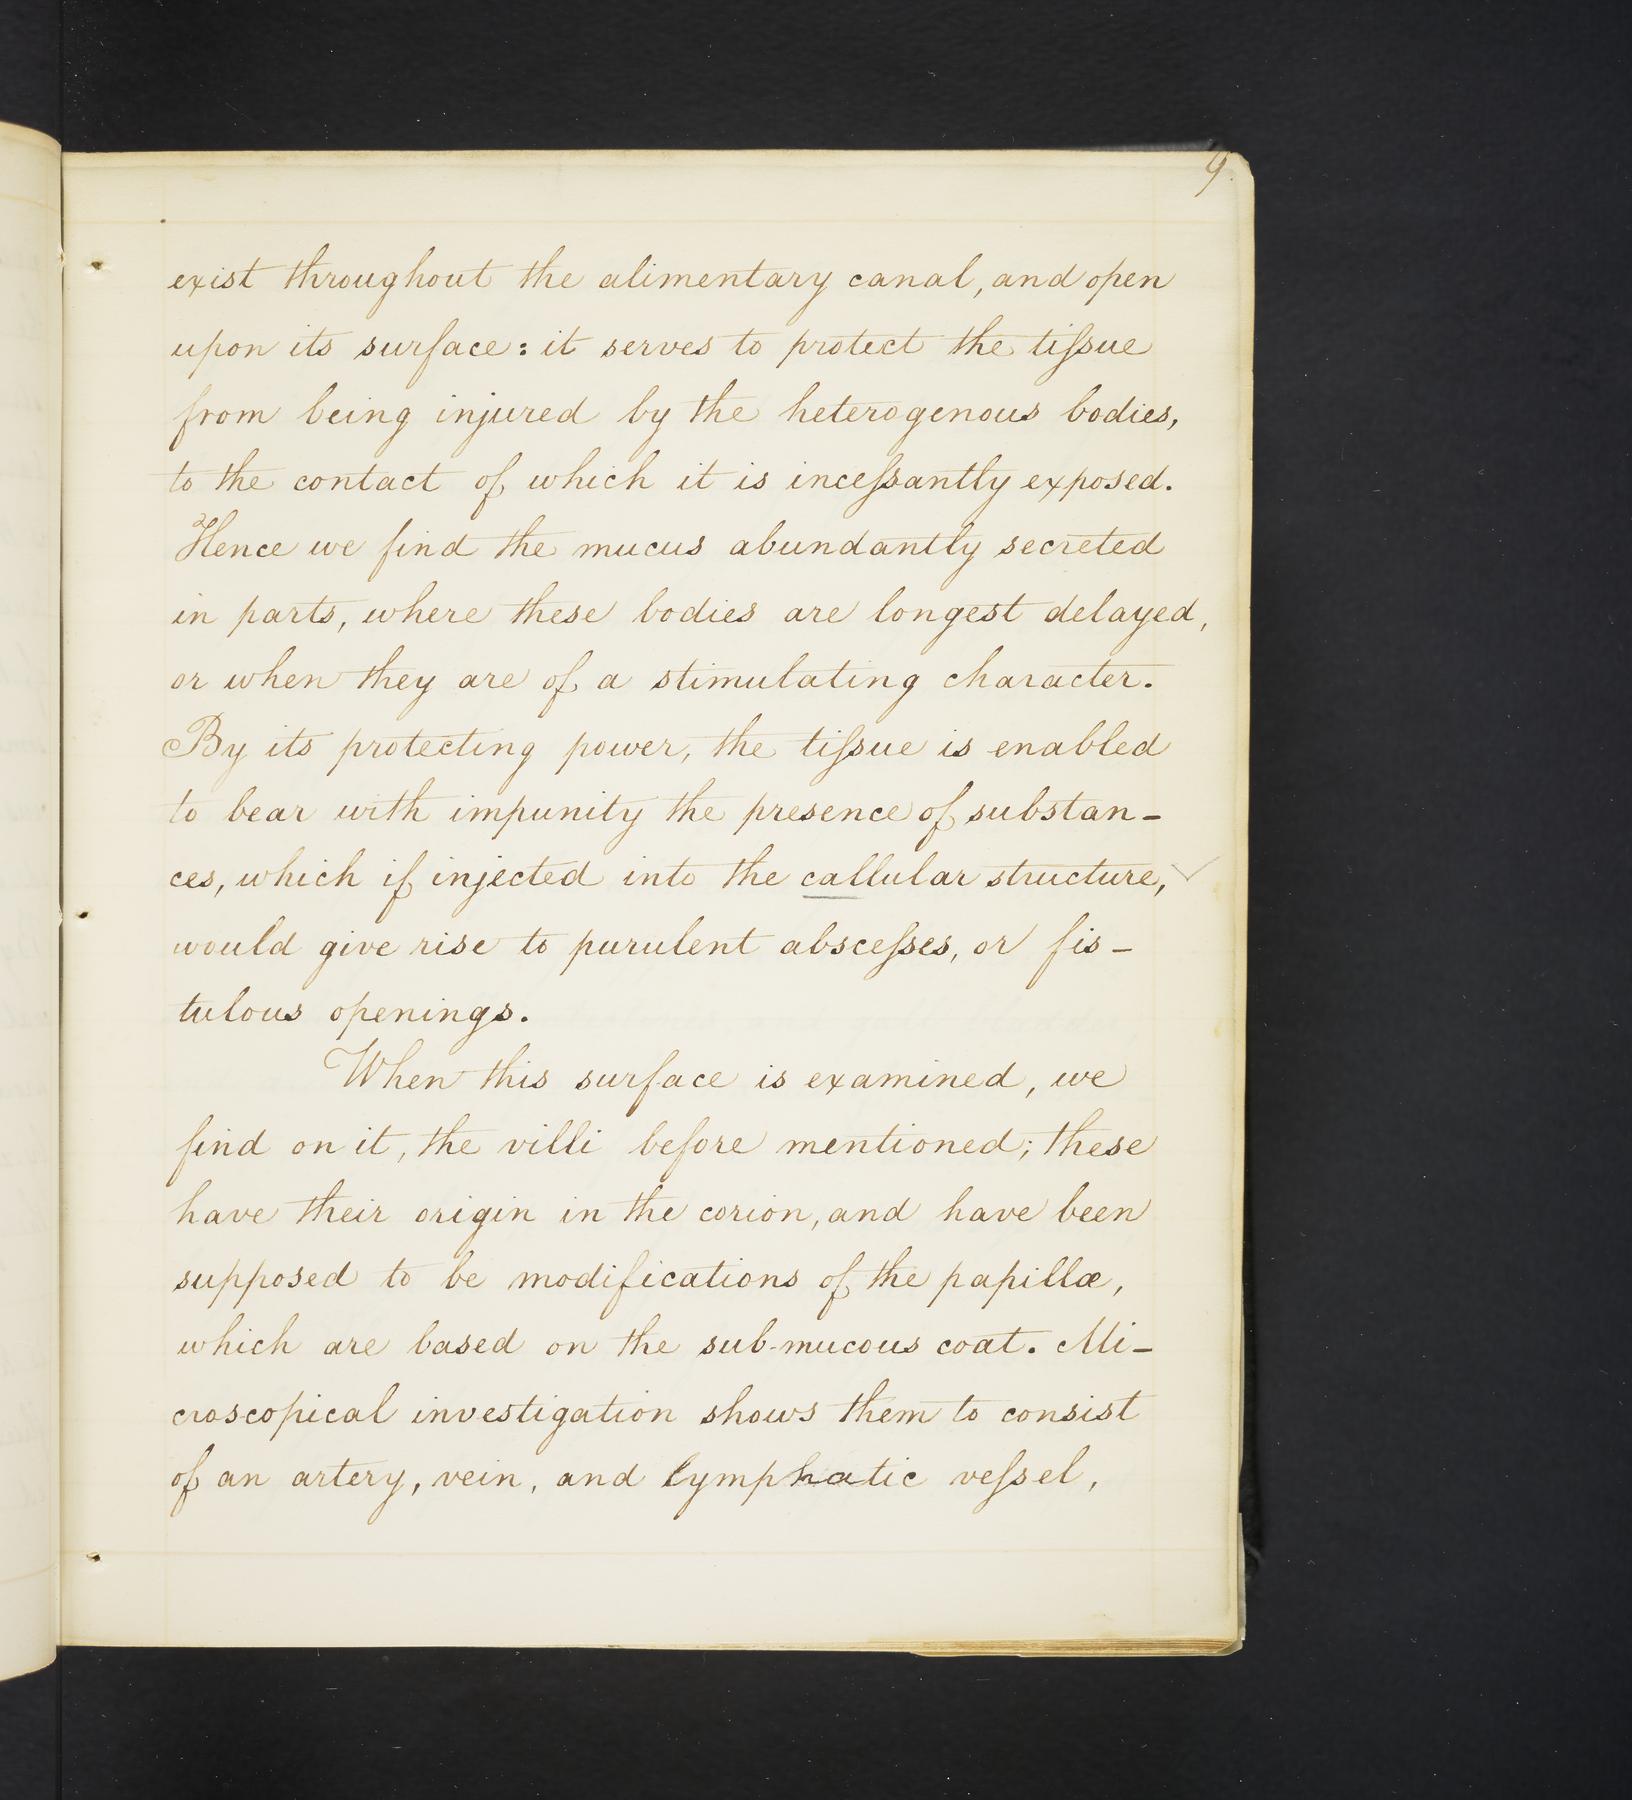 9.
exist throughout the alimentary canal, and open
upon its surface: it serves to protect the tiſsue
from being injured by the heterogenous bodies,
to the contact of which it is inceſsantly exposed.
Hence we find the mucus abundantly secreted
in parts, where these bodies are longest delayed,
or when they are of a stimulating character.
By its protecting power, the tiſsue is enabled
to bear with impunity the presence of substan-
ces, which if injected into the callular structure, ✓
would give rise to purulent absceſses, or fis-
tulous openings.
When this surface is examined, we
find on it, the villi before mentioned; these
have their origin in the corion, and have been
supposed to be modifications of the papillæ,
which are based on the sub-mucous coat. Mi-
croscopical investigation shows them to consist
of an artery, vein, and lymphatic veſsel,